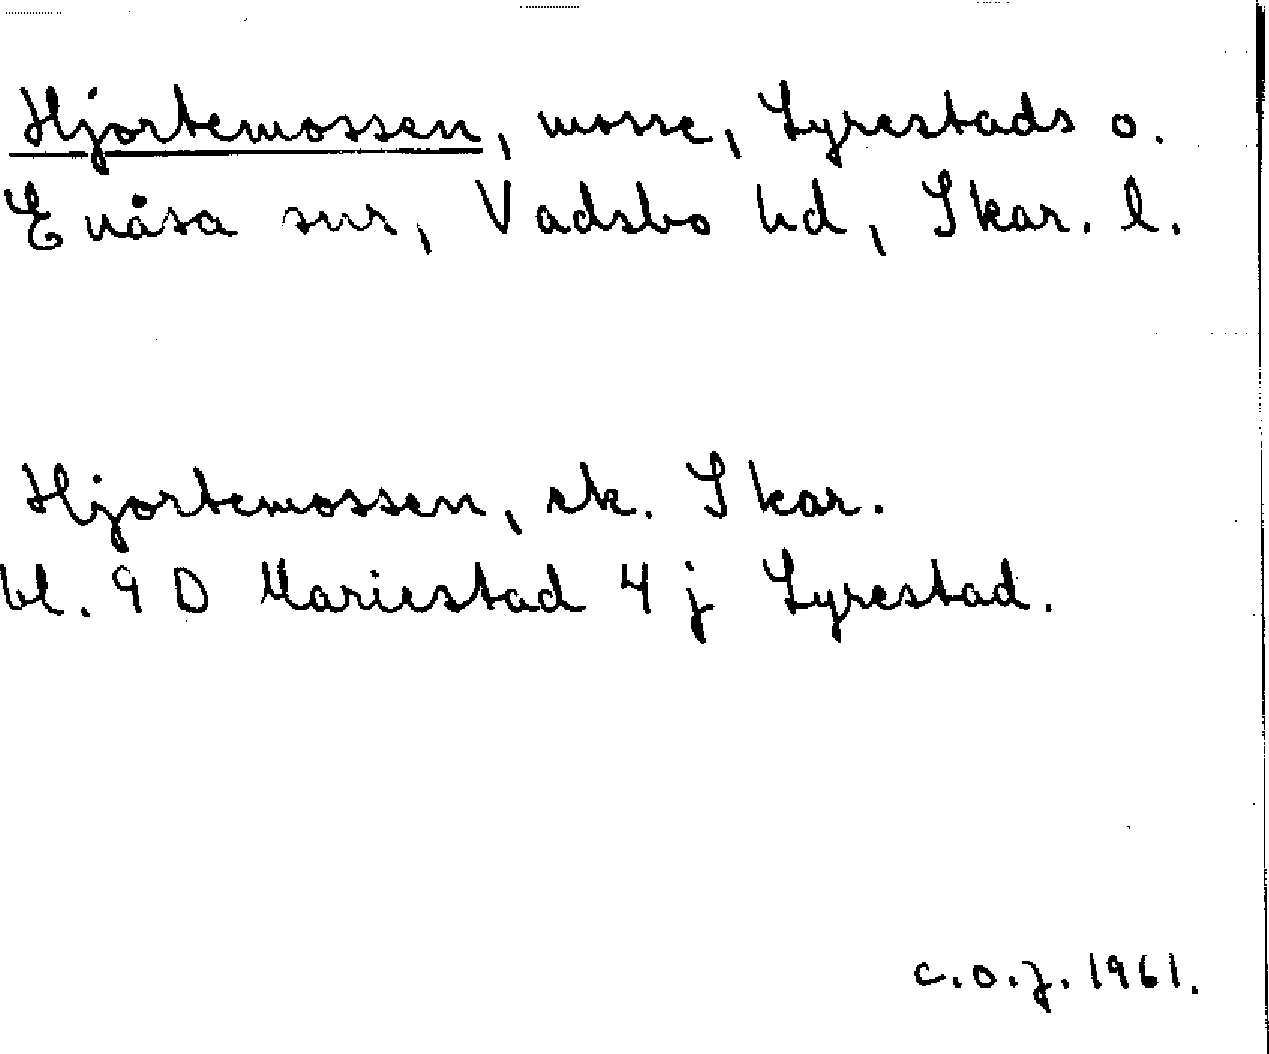 Hjortemossen, mosse, Lyrestads o.
Enåsa snr, Vadsbo hd, Skar. l.
Hjortemossen, ek. Skar.
bl. 9 D Mariestad 4 j Lyrestad.
C.O.J. 1961.